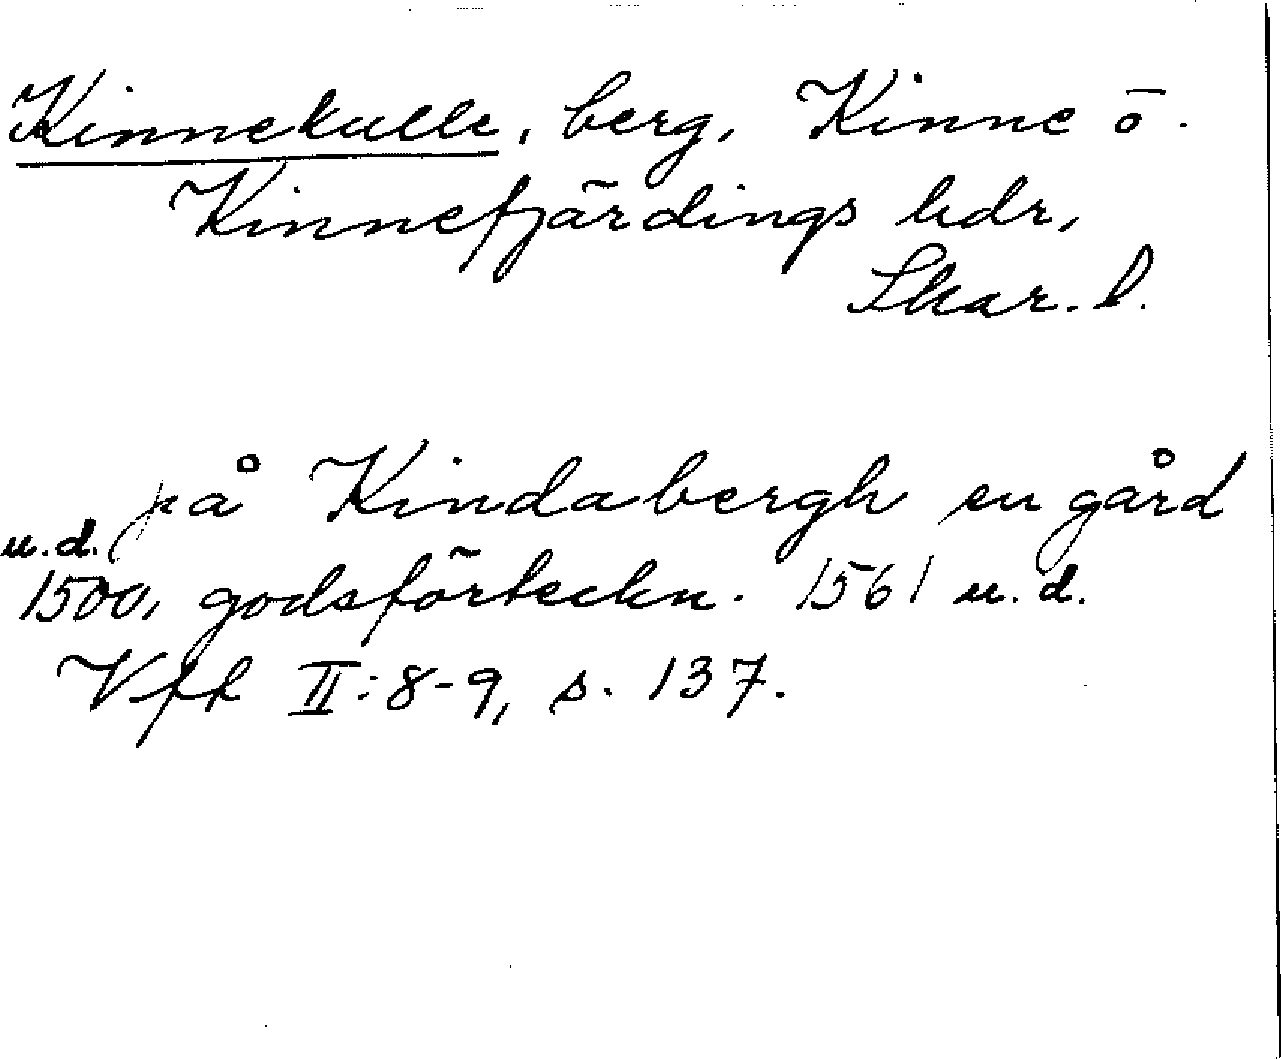 Kinnekulle, berg, Kinne o.
Kinnefjärdings hdr,
Skar. l.
på Kindabergh en gård
u.d.
1500, godsförteckn. 1561 u.d.
Vff II:8-9, s. 137.